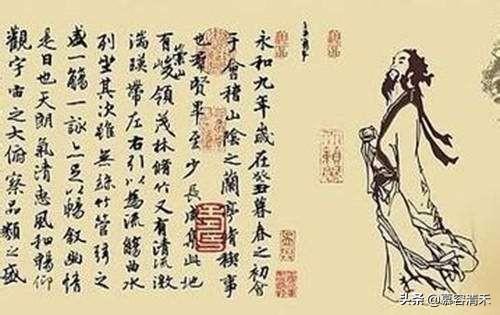 永和九年歲在癸丑暮春之初會
于會稽山陰之蘭亭脩禊事
也羣賢畢至少長咸集此地
有崇山峻領茂林脩竹又有清流激
湍暎帶左右引以為流觴曲水
列坐其次雖無絲竹管弦之
盛一觴一詠亦足以暢敘幽情
是日也天朗氣清惠風和暢仰
觀宇宙之大俯察品類之盛
头条 @慕容清禾